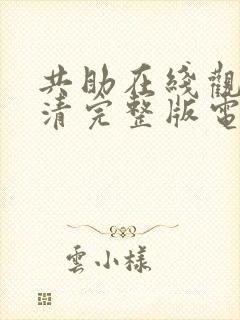 共助在綫觀
清完整版電
雲小樣